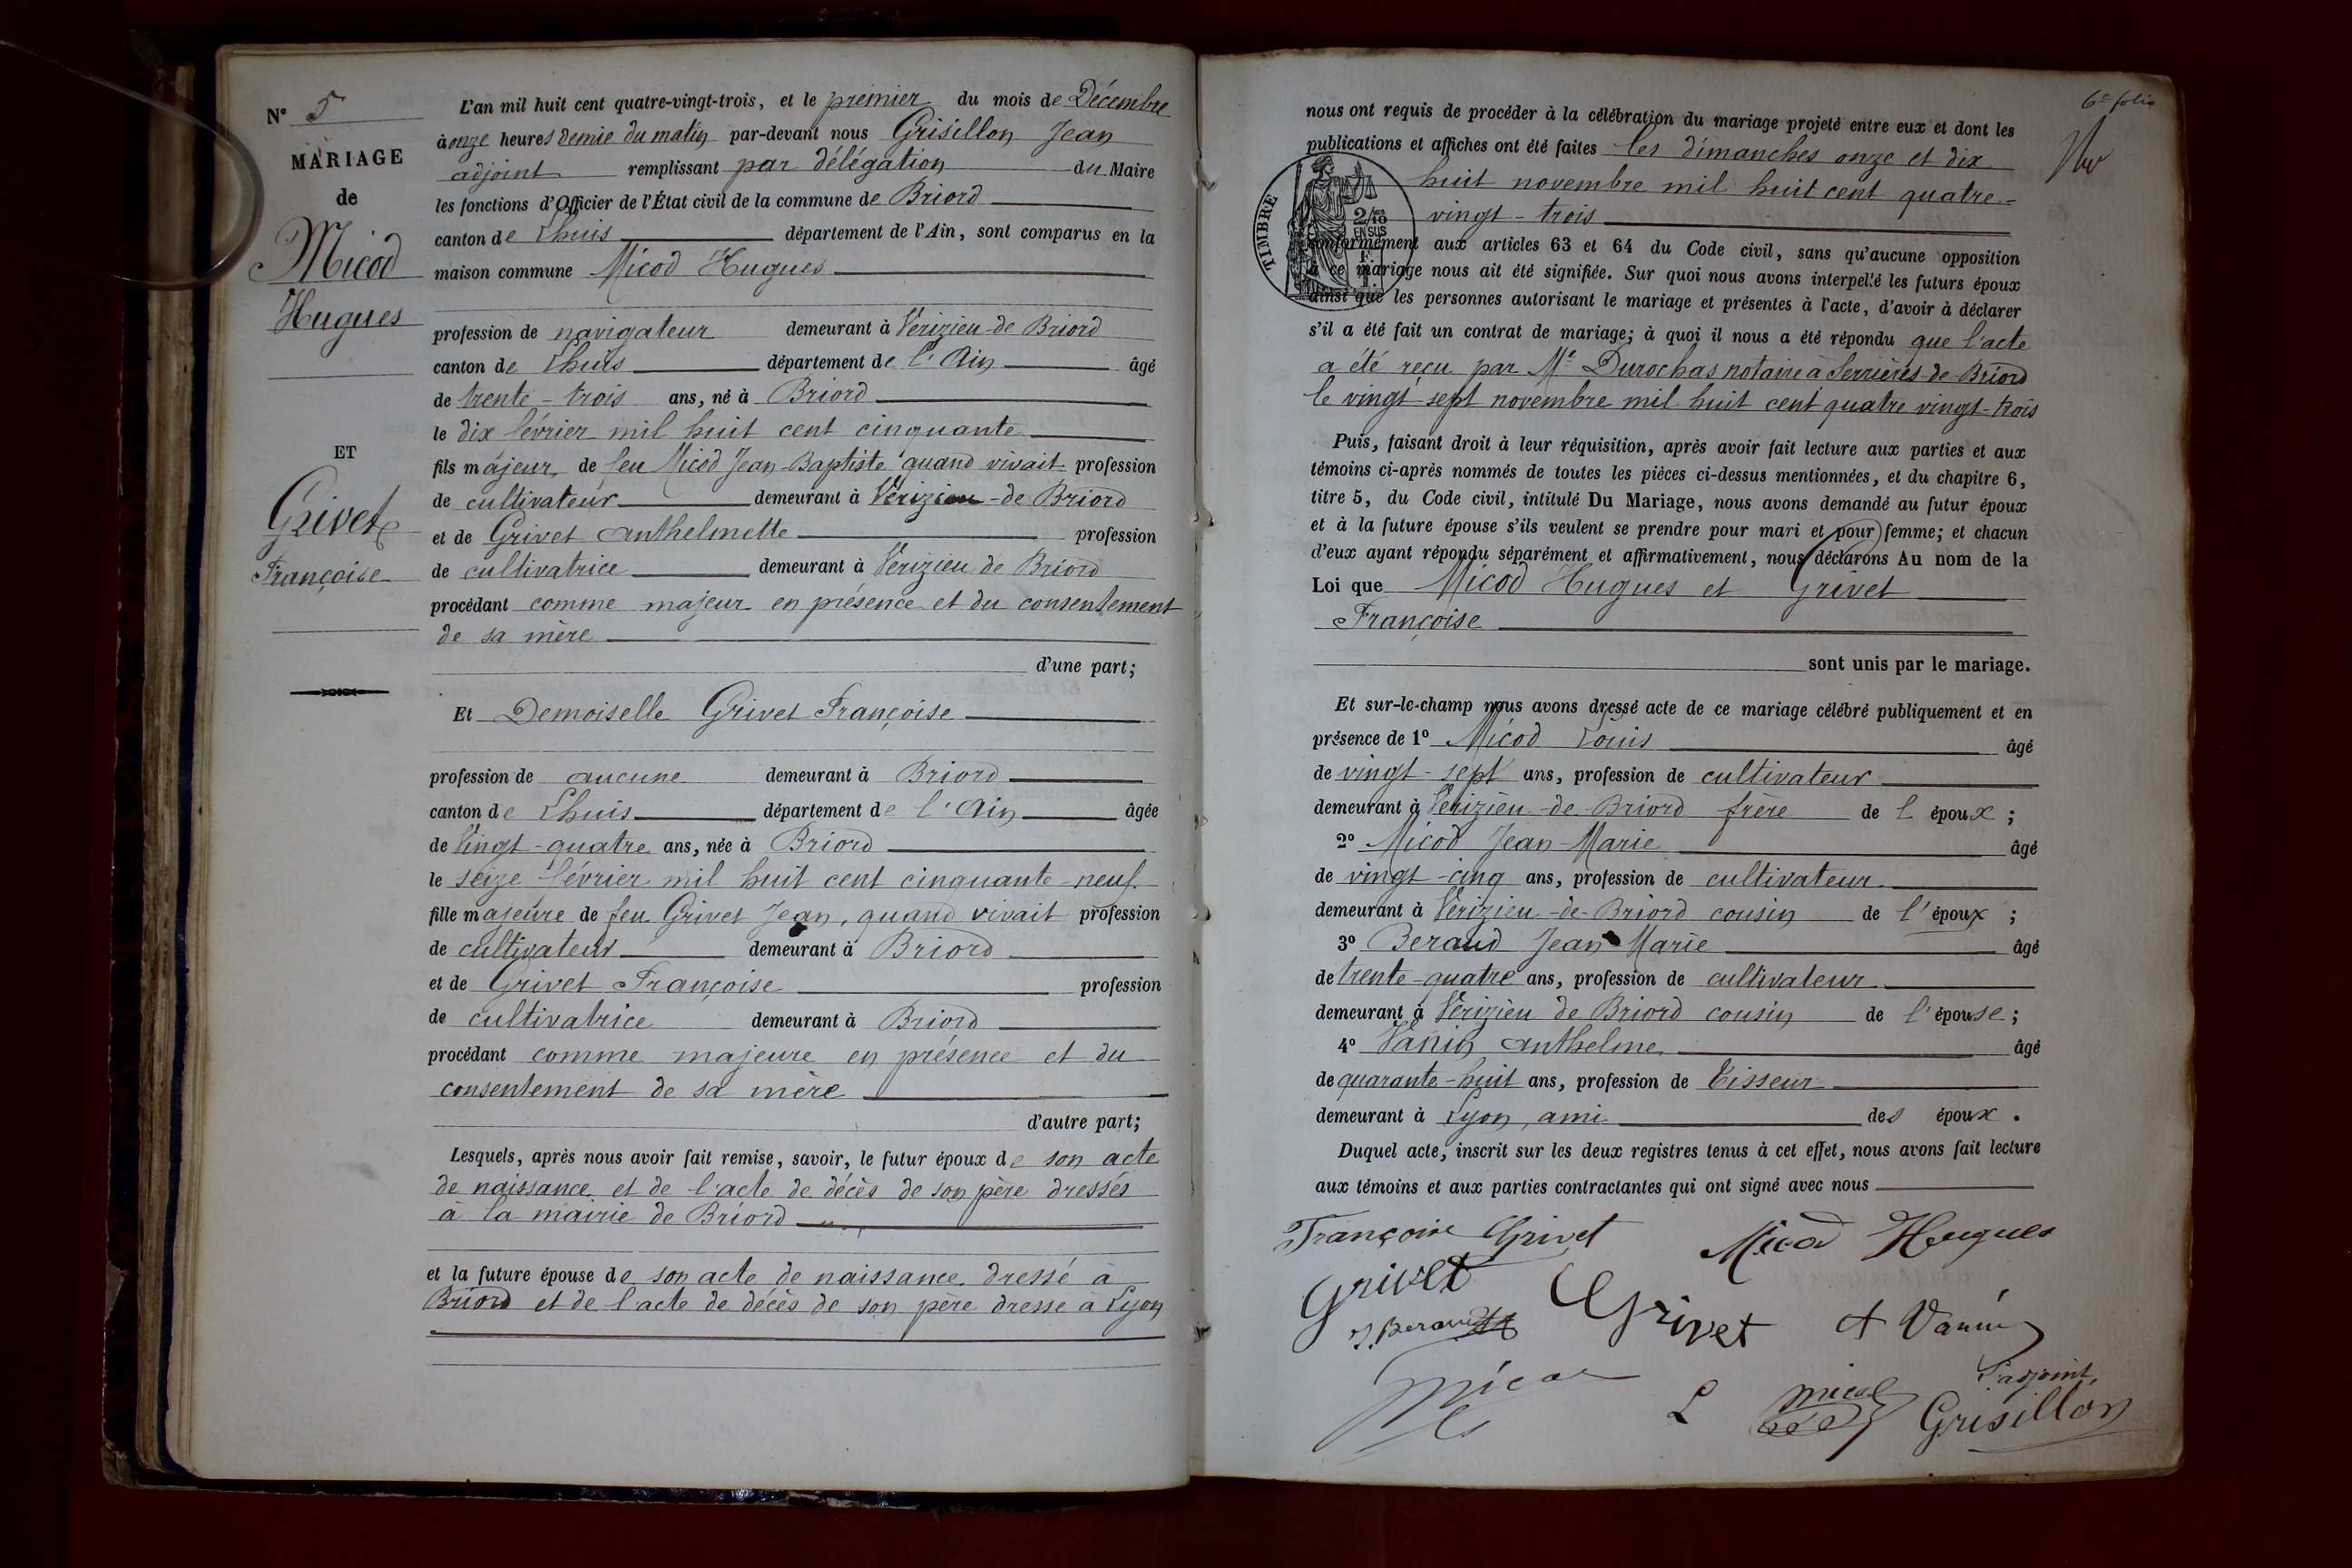 N° 5
MARIAGE
de
Micod
Hugues
ET
Grivet
Françoise
L'an mil huit cent quatre-vingt-trois, et le premier du mois de Décembre
à onze heures demie du matin par-devant nous Grisillon Jean
adjoint remplissant par délégation du Maire
les fonctions d'Officier de l'État civil de la commune de Briord
canton de Lhuis département de l'Ain, sont comparus en la
maison commune Micod Hugues
profession de navigateur demeurant à Vérizieu-de Briord
canton de Lhuis département de l'Ain âgé
de trente-trois ans, né à Briord
le dix février mil huit cent cinquante
fils majeur de feu Micod Jean-Baptiste quand vivait profession
de cultivateur demeurant à Vérizieu-de Briord
et de Grivet Anthelmette profession
de cultivatrice demeurant à Vérizieu de Briord
procédant comme majeur en présence et du consentement
de sa mère
d'une part;
Et Demoiselle Grivet Françoise
profession de aucune demeurant à Briord
canton de Lhuis département de l'Ain âgée
de Vingt-quatre ans, née à Briord
le seize février mil huit cent cinquante-neuf
fille majeure de feu Grivet Jean, quand vivait profession
de cultivateur demeurant à Briord
et de Grivet Françoise profession
de cultivatrice demeurant à Briord
procédant comme majeure en présence et du
consentement de sa mère
d'autre part;
Lesquels, après nous avoir fait remise, savoir, le futur époux de son acte
de naissance et de l'acte de décès de son père dressés
à la mairie de Briord
et la future épouse de son acte de naissance dressé à
Briord et de l'acte de décès de son père dressé à Lyon
6e folio
nous ont requis de procéder à la célébration du mariage projeté entre eux et dont les
publications et affiches ont été faites les dimanches onze et dix
huit novembre mil huit cent quatre-
vingt-trois
TIMBRE
2/10 EN SUS
conformément aux articles 63 et 64 du Code civil, sans qu'aucune opposition
à ce mariage nous ait été signifiée. Sur quoi nous avons interpellé les futurs époux
ainsi que les personnes autorisant le mariage et présentes à l'acte, d'avoir à déclarer
s'il a été fait un contrat de mariage; à quoi il nous a été répondu que l'acte
a été reçu par Me Durochas notaire à Serrières-de-Briord
le vingt-sept novembre mil huit cent quatre vingt-trois
Puis, faisant droit à leur réquisition, après avoir fait lecture aux parties et aux
témoins ci-après nommés de toutes les pièces ci-dessus mentionnées, et du chapitre 6,
titre 5, du Code civil, intitulé Du Mariage, nous avons demandé au futur époux
et à la future épouse s'ils veulent se prendre pour mari et pour femme; et chacun
d'eux ayant répondu séparément et affirmativement, nous déclarons Au nom de la
Loi que Micod Hugues et Grivet
Françoise
sont unis par le mariage.
Et sur-le-champ nous avons dressé acte de ce mariage célébré publiquement et en
présence de 1° Micod Louis âgé
de vingt-sept ans, profession de cultivateur
demeurant à Vérizieu-de-Briord frère de l époux;
2° Micod Jean-Marie âgé
de vingt-cinq ans, profession de cultivateur
demeurant à Vérizieu-de-Briord cousin de l'époux;
3° Beraud Jean Marie âgé
de trente-quatre ans, profession de cultivateur
demeurant à Vérizieu de Briord cousin de l'épouse;
4° Vanin Anthelme âgé
de quarante-huit ans, profession de Tisseur
demeurant à Lyon, ami des époux.
Duquel acte, inscrit sur les deux registres tenus à cet effet, nous avons fait lecture
aux témoins et aux parties contractantes qui ont signé avec nous
Françoise Grivet Micod Hugues
Grivet Grivet A Vanin
J. Beraud
Micod L Micod L'adjoint,
Grisillon